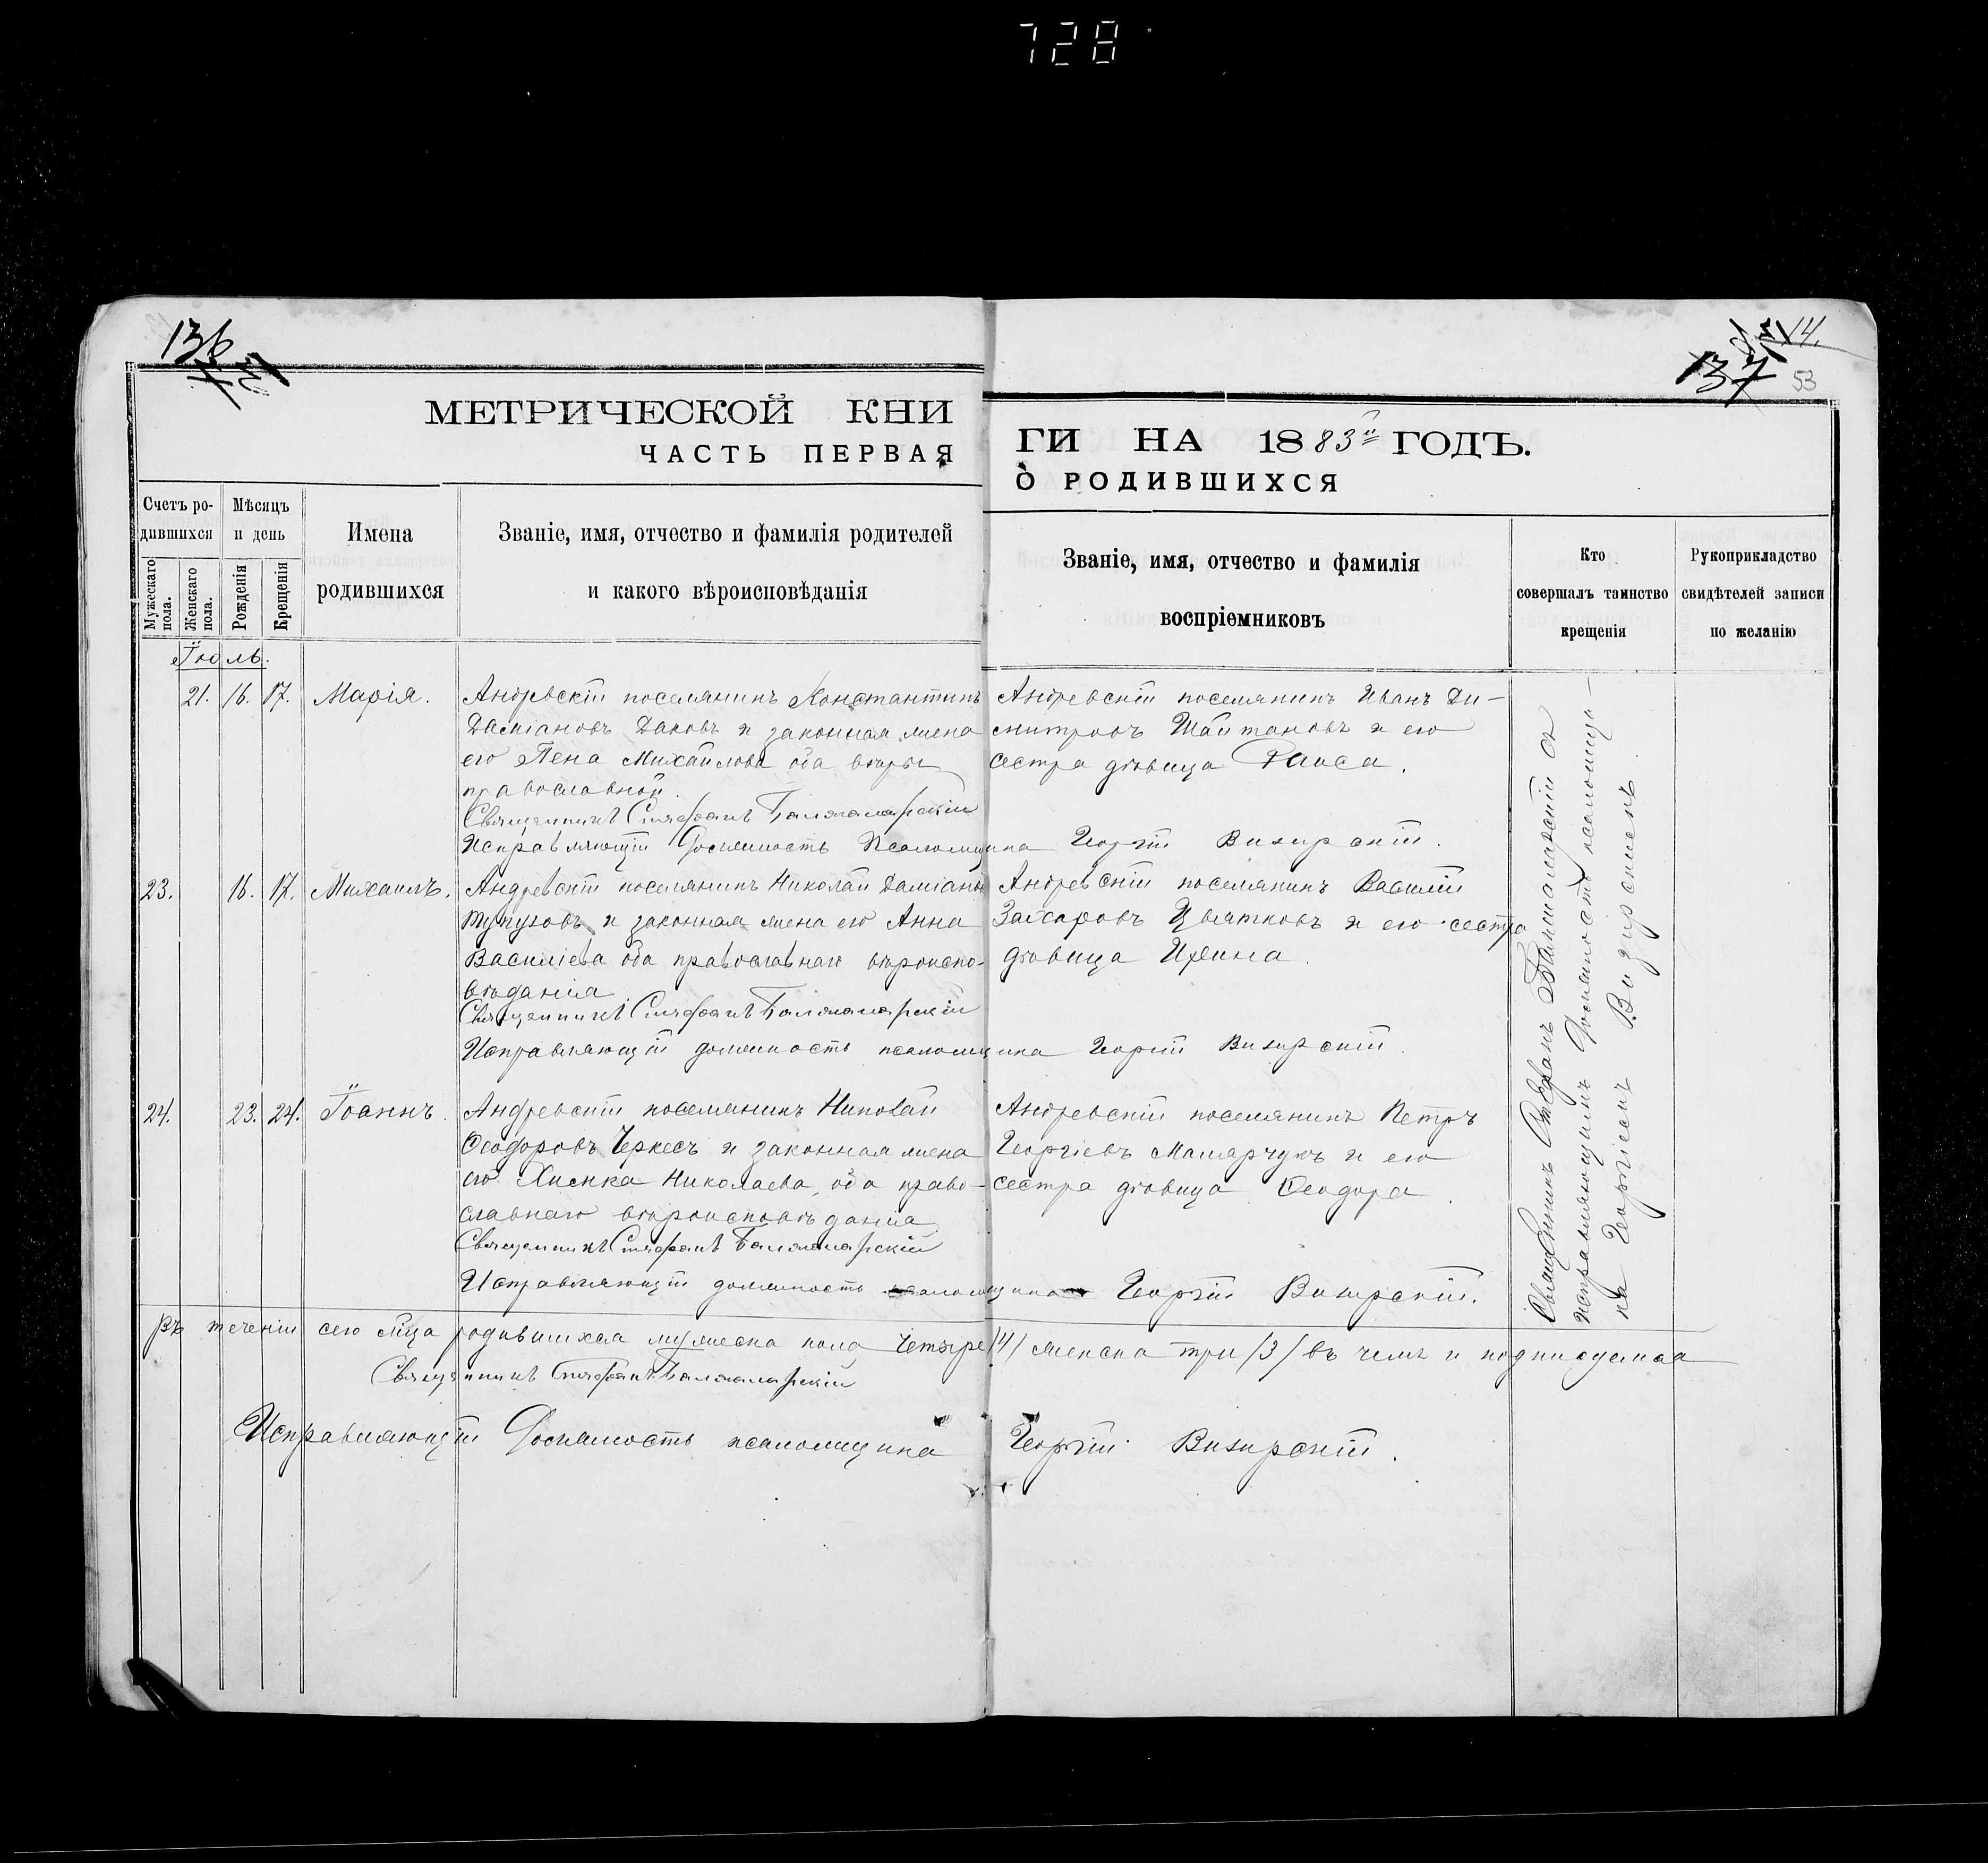 728
136
14.
137
53
МЕТРИЧЕСКОЙ КНИ
ЧАСТЬ ПЕРВАЯ
ГИ НА 1883й ГОДЪ.
О РОДИВШИХСЯ
Счетъ ро-
дившихся
Мѣсяцъ
и день
Имена
родившихся
Званіе, имя, отчество и фамилія родителей
и какого вѣроисповѣданія
Мужескаго пола.
Женскаго пола.
Рожденія
Крещенія
Званіе, имя, отчество и фамилія
воспріемниковъ
Кто
совершалъ таинство
крещенія
Рукоприкладство
свидѣтелей записи
по желанію
Іюль.
21. 16. 17. Марія.
Андревскій поселянинъ Константинъ
Даміановъ Даковъ и законная жена
его Пена Михайлова оба вѣры
православной.
Андревскій поселянинъ Иванъ Ди-
митровъ Шайтановъ и его
сестра дѣвица Раиса.
Священникъ Стефанъ
Исправляющій Должность Псаломщика Георгій Визирскій.
23. 16. 17. Михаилъ.
Андревскій поселянинъ Николай Даміановъ
и законная жена его Анна
Василіева оба православнаго вѣроиспо-
вѣданія
Андревскій поселянинъ Василій
Захаровъ Цвятковъ и его сестра
дѣвица Ирина.
Священникъ Стефанъ
Исправляющій должность псаломщика Георгій Визирскій.
24. 23. 24. Іоаннъ.
Андревскій поселянинъ Николай
Ѳеодоровъ Черкесъ и законная жена
его Николаева, оба право-
славнаго вѣроисповѣданія
Андревскій поселянинъ Петръ
Георгіевъ и его
сестра дѣвица Ѳеодора.
Священникъ Стефанъ
Исправляющій должность псаломщика Георгій Визирскій.
Священникъ Стефанъ съ
исправляющимъ Должность псаломщи-
ка Георгіемъ Визирскимъ.
Въ теченіи сего мѣца родившихся мужеска пола Четыре /4/ женска три /3/ въ чемъ и подписуемся
Священникъ Стефанъ
Исправляющій Должность псаломщика Георгій Визирскій.